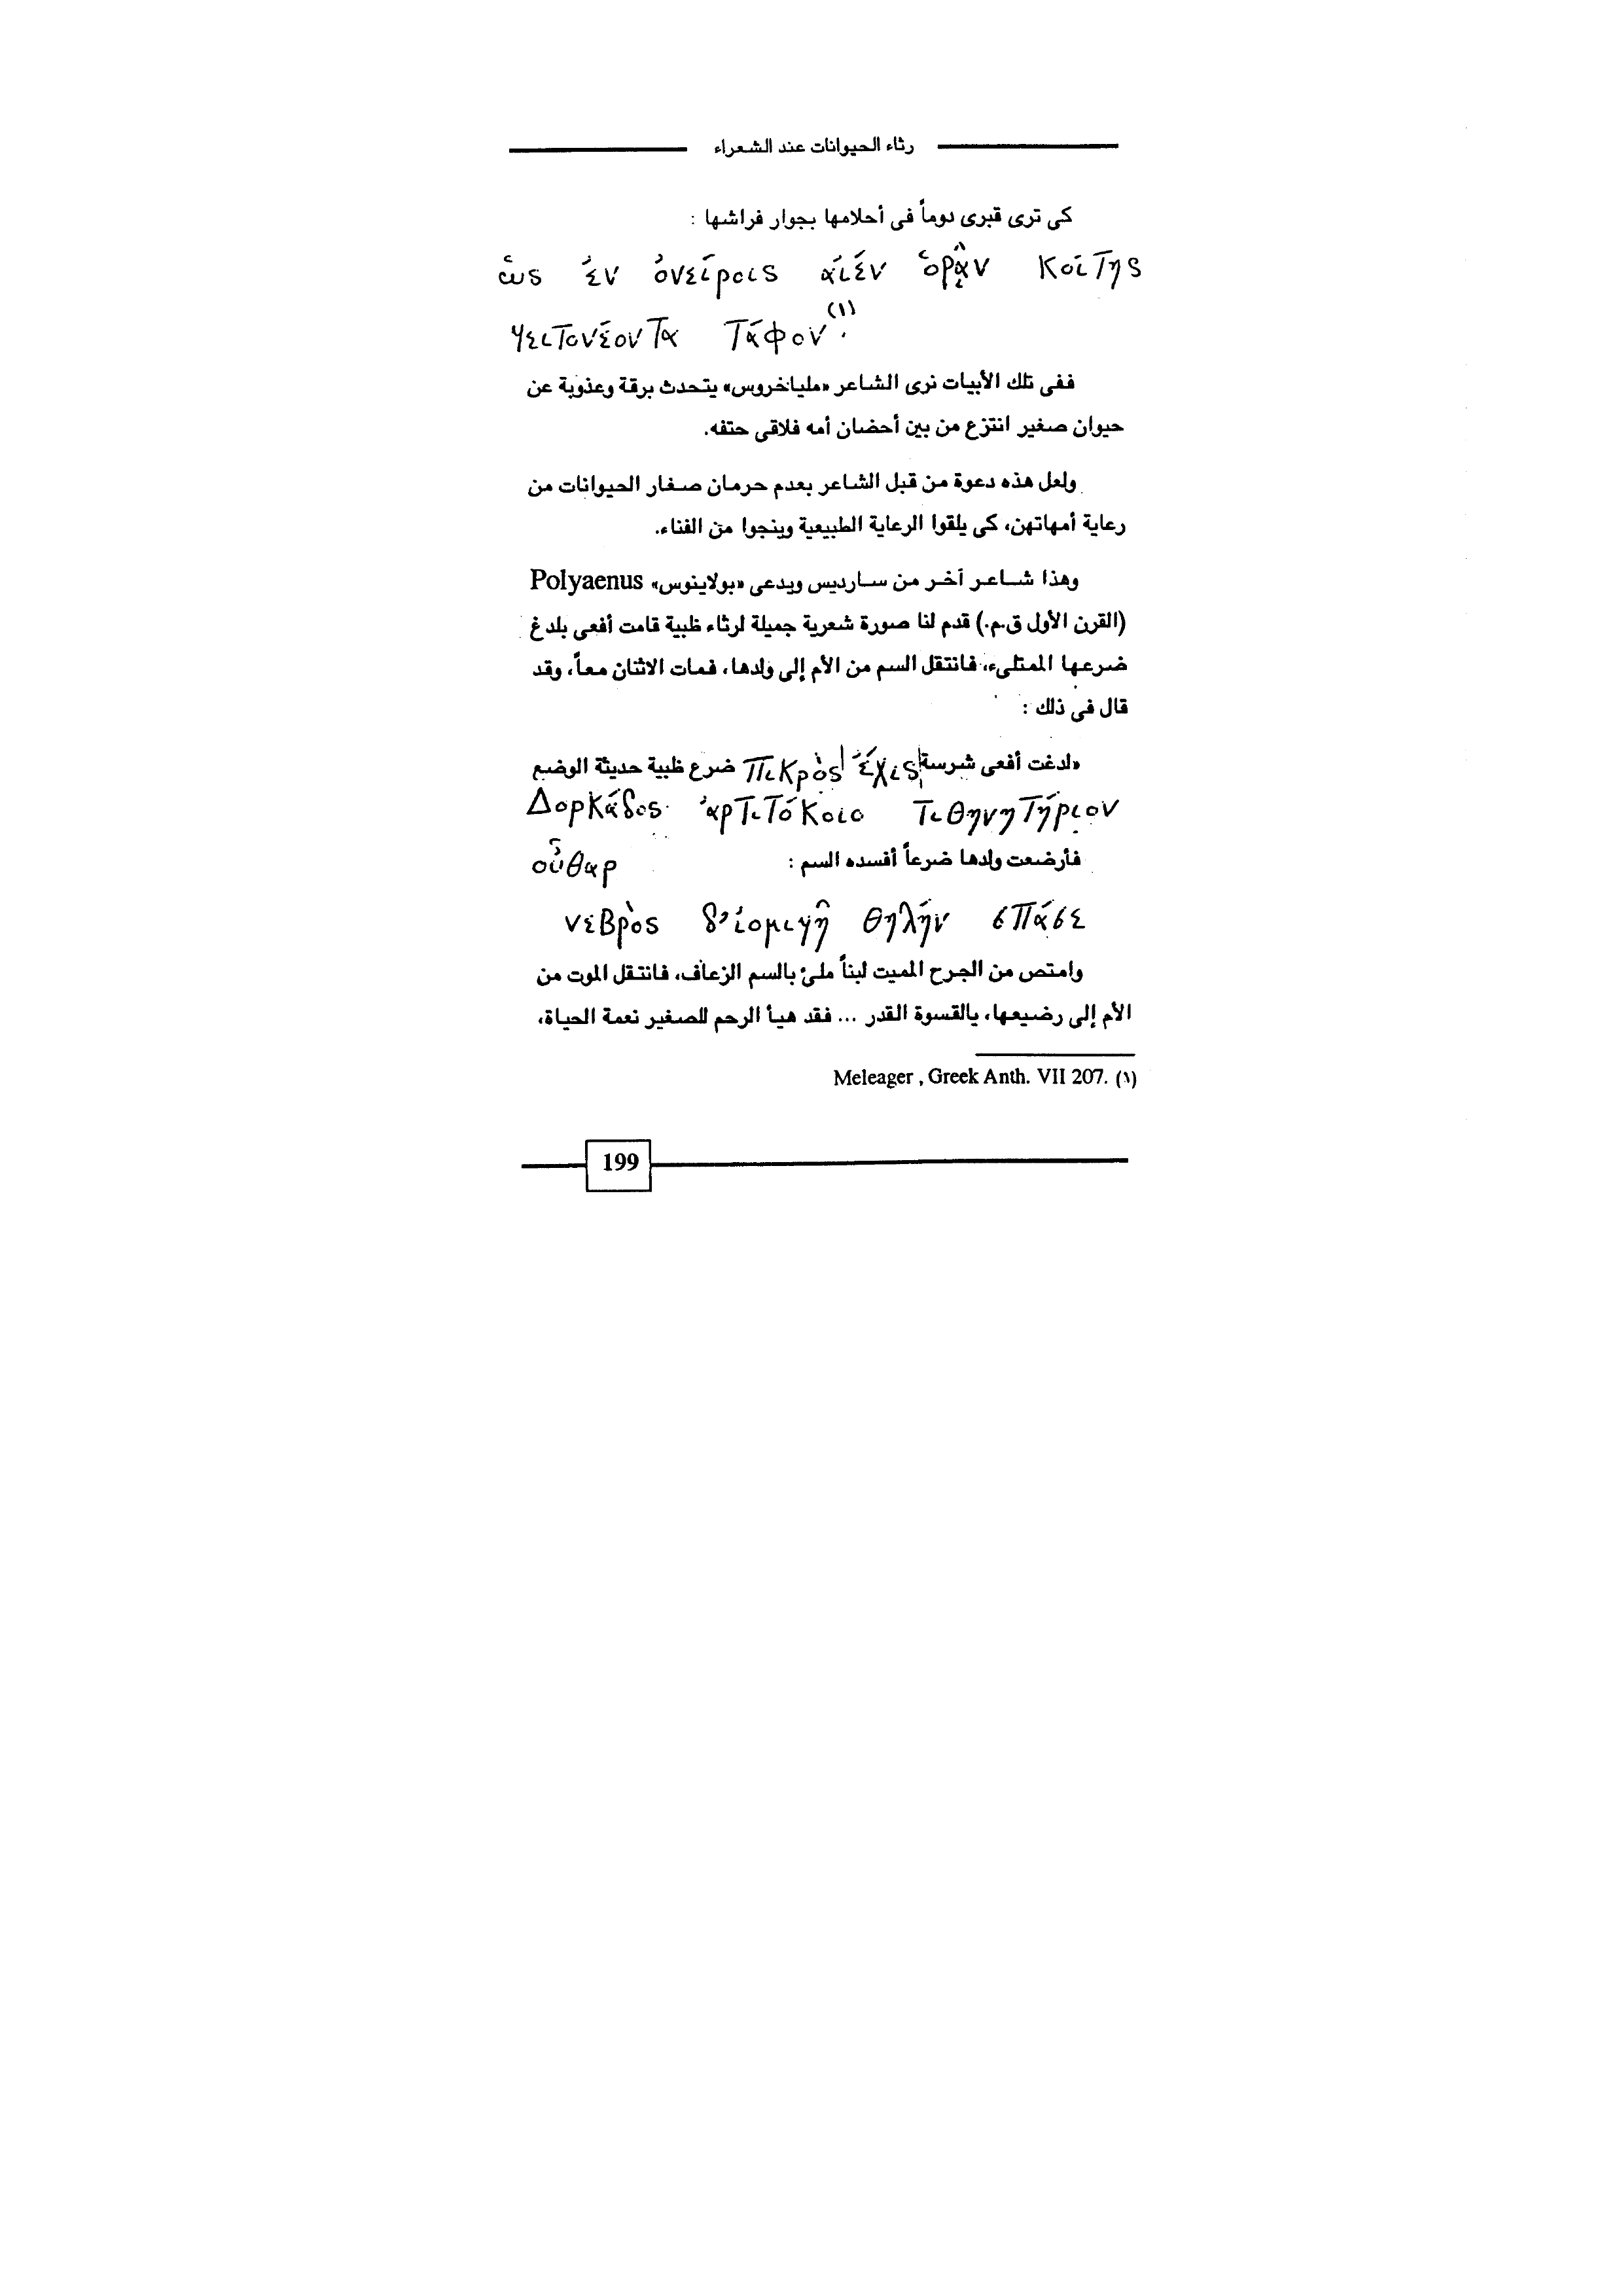 رثاء الحيوانات عند الشعراء
كى ترى قبرى دوماً فى أحلامها بجوار فراشها :
ὡς ἐν ὀνείροις αἰέν ὁρᾷν κοίτης
γειτονέοντα τάφον. (١)
ففى تلك الأبيات نرى الشاعر «ملياخروس» يتحدث برقة وعذوبة عن
حيوان صغير انتزع من بين أحضان أمه فلاقى حتفه.
ولعل هذه دعوة من قبل الشاعر بعدم حرمان صغار الحيوانات من
رعاية أمهاتهن، كى يلقوا الرعاية الطبيعية وينجوا من الفناء.
وهذا شاعر آخر من سارديس ويدعى «بولاينوس» Polyaenus
(القرن الأول ق.م.) قدم لنا صورة شعرية جميلة لرثاء ظبية قامت أفعى بلدغ
ضرعها الممتلىء، فانتقل السم من الأم إلى ولدها، فمات الاثنان معاً، وقد
قال فى ذلك :
«لدغت أفعى شرسة πικρὸς ἔχις ضرع ظبية حديثة الوضع
Δορκάδος ἀρτιτόκοιο τιθηνητήριον
οὖθαρ فأرضعت ولدها ضرعاً أفسده السم :
νεβρὸς δ’ ἰομιγῆ θηλήν σπάσε
وامتص من الجرح المميت لبناً ملئ بالسم الزعاف، فانتقل الموت من
الأم إلى رضيعها، يالقسوة القدر ... فقد هيأ الرحم للصغير نعمة الحياة،
(١) Meleager , Greek Anth. VII 207.
199